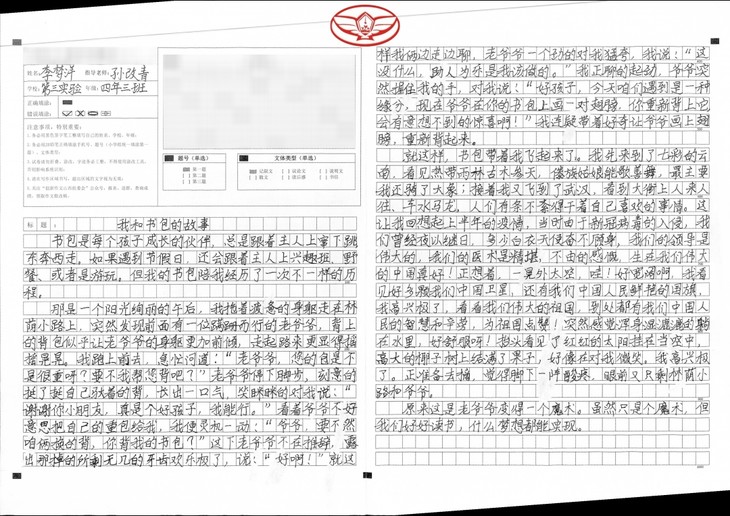 姓名: 李梦洋 指导老师: 孙改青
学校: 第三实验 年级: 四年三班
正确填涂:
错误填涂:
注意事项,特别重要:
题号(单选)
文体类型(单选)
第一题
第二题
第三题
记叙文
说明文
议论文
散文
标题: 我和书包的故事
书包是每个孩子成长的伙伴,总是跟着主人上窜下跳
东奔西走。如果遇到节假日,还会跟着主人上兴趣班,野
餐,或者是游玩。但我的书包陪我经历了一次不一样的历
程。
那是一个阳光绚丽的午后,我拖着疲惫的身躯走在林
荫小路上,突然发现前面有一位蹒跚而行的老爷爷,背上
的背包似乎让老爷爷的身躯更加前倾,走起路来更显得摇
摇晃晃。我跑上前去,急忙问道:“老爷爷,您的包是不
是很重呀?要不我帮您背吧?”老爷爷停下脚步,刻意的
挺了挺自己驮着的背,长出一口气,笑眯眯的对我说:“
谢谢你小朋友,真是个好孩子,我能行。”看着爷爷不好
意思把自己的重包给我,我便灵机一动:“爷爷,要不然
咱俩换的背,你背我的书包?”这下老爷爷不在推辞,露
出那掉的所剩无几的牙齿欢乐极了,说:“好啊!”就这
样我俩边走边聊,老爷爷一个劲的对我猛夸,我说:“这
没什么,助人为乐是我该做的。”我正聊的起劲,爷爷突
然握住我的手,对我说:“好孩子,今天咱们遇到是一种
缘分,现在爷爷在你的书包上画一对翅膀,你重新背上它
会有意想不到的惊喜啊!”我连疑带着好奇让爷爷画上翅
膀,重新背起来。
就这样,书包带着我飞起来了。我先来到了七彩的云
南,看见热带雨林古木参天,傣族姑娘能歌善舞,最主要
我还骑了大象;接着我又飞到了武汉,看到大街上人来人
往,车水马龙,人们有条不紊得干着自己喜欢的事情。这
让我回想起上半年的疫情,当时由于新冠病毒的入侵,我
们曾经夜以继日,多少白衣天使奋不顾身,我们的领导是
伟大的,我们的医术是精堪,不由的感慨,生在我们伟大
的中国真好!正想着,一晃外太空,哇!好宽阔啊,我看
见好多颗我们中国卫星,还有我们中国人民鲜艳的国旗,
我高兴极了,看着我们伟大的祖国,到处都有我们中国人
民的智慧和辛劳,为祖国点赞!突然感觉浑身湿漉漉的躺
在水里,好舒服呀!抬头看见了红红的太阳挂在当空中,
高大的椰子树上结满了果子,好像在对我微笑,我高兴极
了。正准备去摘,觉得脚下一阵酸疼,眼前又只剩林荫小
路和爷爷。
原来这是老爷爷变得一个魔术。虽然只是个魔术,但
我们好好读书,什么梦想都能实现。